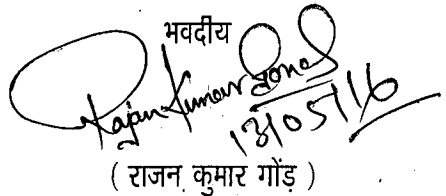 भवदीय
Rajan Kumar Gond
13/05/16
( राजन कुमार गोंड़ )